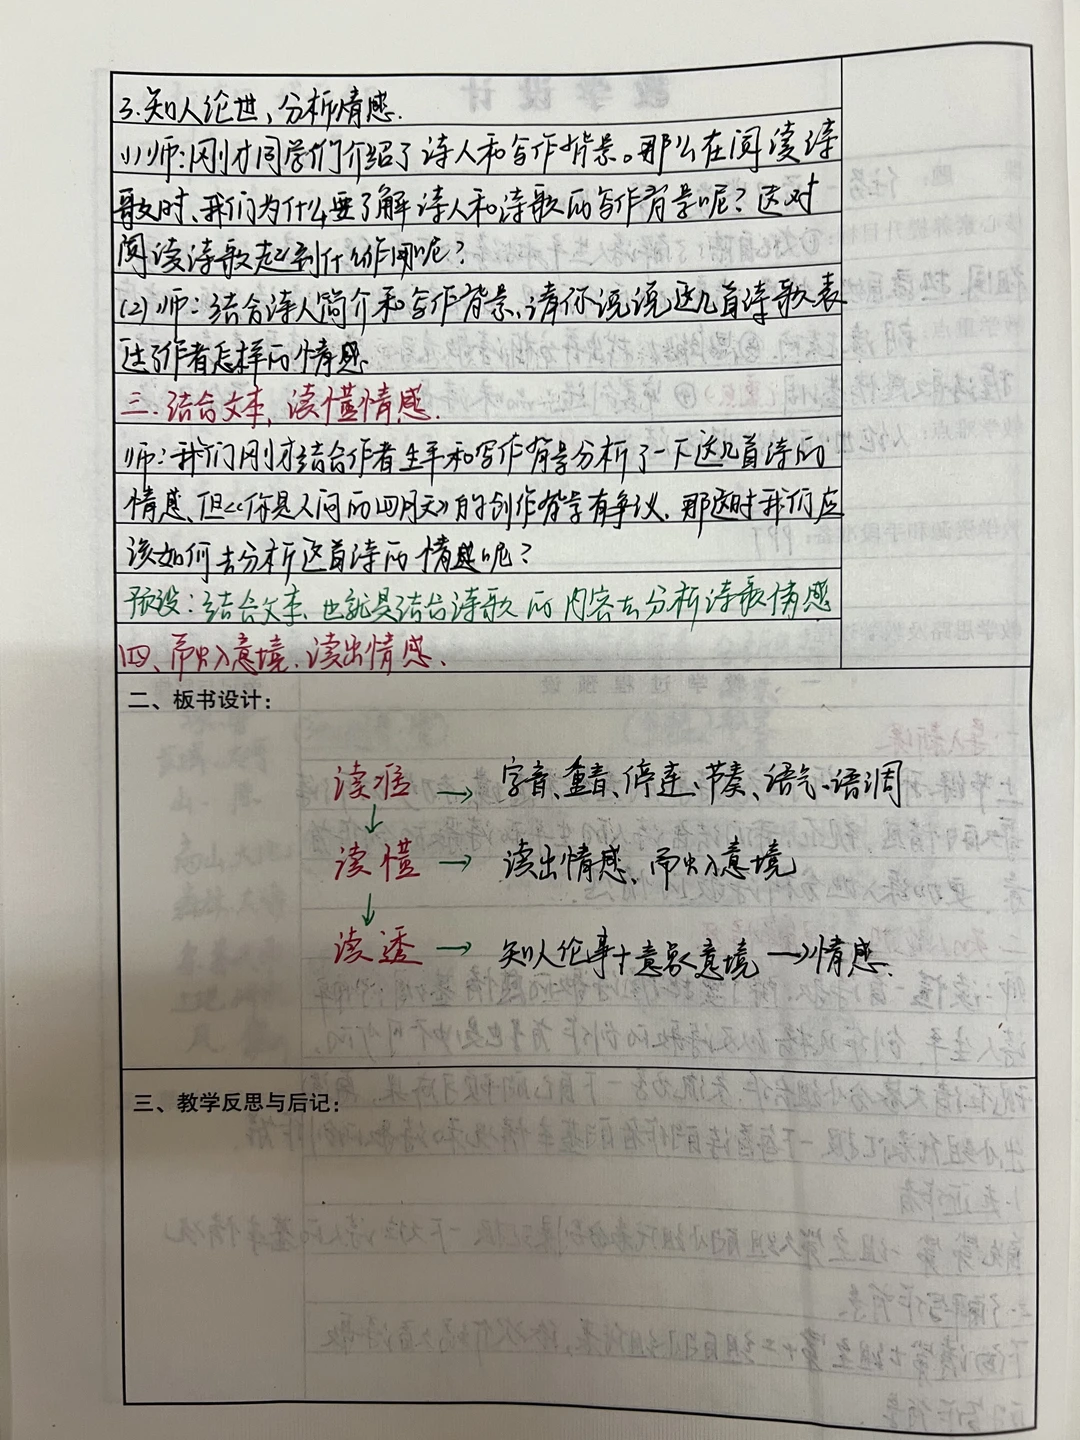 3.知人论世，分析情感.
(1)师：刚才同学们介绍了诗人和写作背景。那么在阅读诗
歌时、我们为什么要了解诗人和诗歌的写作背景呢？这对
阅读诗歌起到什么作用呢？
(2)师：结合诗人简介和写作背景、请你说说这几首诗歌表
达了作者怎样的情感.
三.结合文本，读懂情感.
师：我们刚才结合作者生平和写作背景分析了一下这几首诗的
情感、但《你是人间的四月天》的创作背景有争议、那这时我们应
该如何去分析这首诗的情感呢？
预设：结合文本、也就是结合诗歌的内容去分析诗歌情感
四、而入意境、读出情感、
二、板书设计：
读准 → 字音、重音、停连、节奏、语气、语调
↓
读懂 → 读出情感、而入意境
↓
读透 → 知人论事+意象意境 → 情感.
三、教学反思与后记：